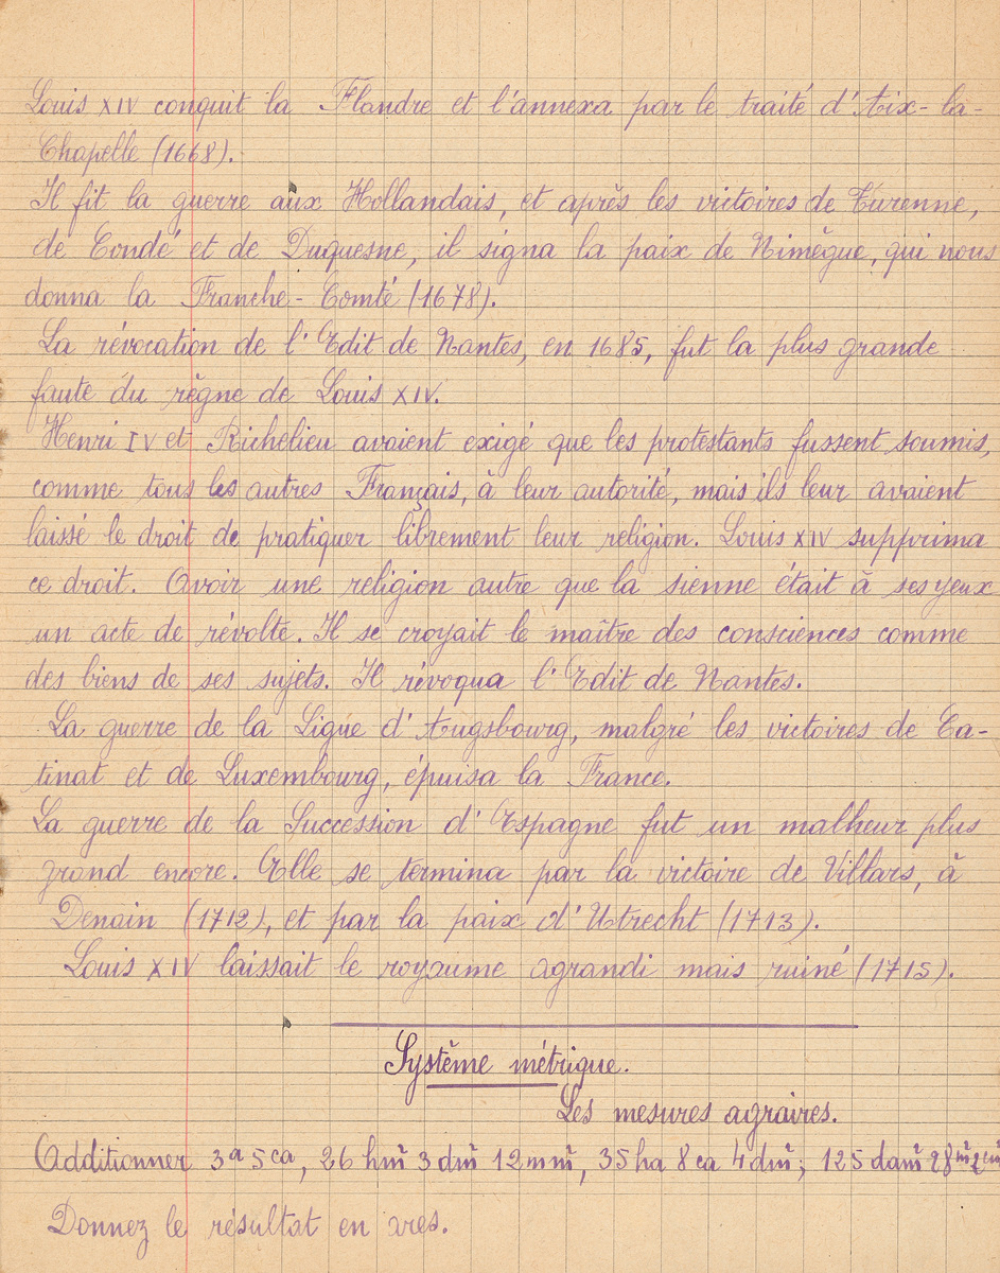 Louis XIV conquit la Flandre et l'annexa par le traité d'Aix-la-
Chapelle (1668).
Il fit la guerre aux Hollandais, et après les victoires de Turenne,
de Condé et de Duquesne, il signa la paix de Nimègue, qui nous
donna la Franche-Comté (1678).
La révocation de l'Edit de Nantes, en 1685, fut la plus grande
faute du règne de Louis XIV.
Henri IV et Richelieu avaient exigé que les protestants fussent soumis,
comme tous les autres Français, à leur autorité, mais ils leur avaient
laissé le droit de pratiquer librement leur religion. Louis XIV supprima
ce droit. Avoir une religion autre que la sienne était à ses yeux
un acte de révolte. Il se croyait le maître des consciences comme
des biens de ses sujets. Il révoqua l'Edit de Nantes.
La guerre de la Ligue d'Augsbourg, malgré les victoires de Ca-
tinat et de Luxembourg, épuisa la France.
La guerre de la Succession d'Espagne fut un malheur plus
grand encore. Elle se termina par la victoire de Villars, à
Denain (1712), et par la paix d'Utrecht (1713).
Louis XIV laissait le royaume agrandi mais ruiné (1715).
Système métrique.
Les mesures agraires.
Additionner 3a 5ca, 26 hm² 3 dm² 12 mm², 35 ha 8 ca 4 dm²; 125 dam² 28 m²
Donnez le résultat en ares.